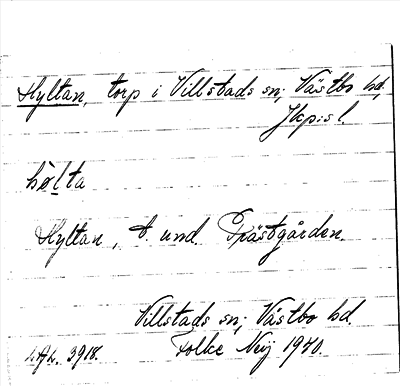 Hyltan, torp i Villstads sn; Västbo hd,
Jkp:s l
hølta
Hyltan, t. und. Prästgården.
Villstads sn; Västbo hd.
Folke Nij 1940.
3918.